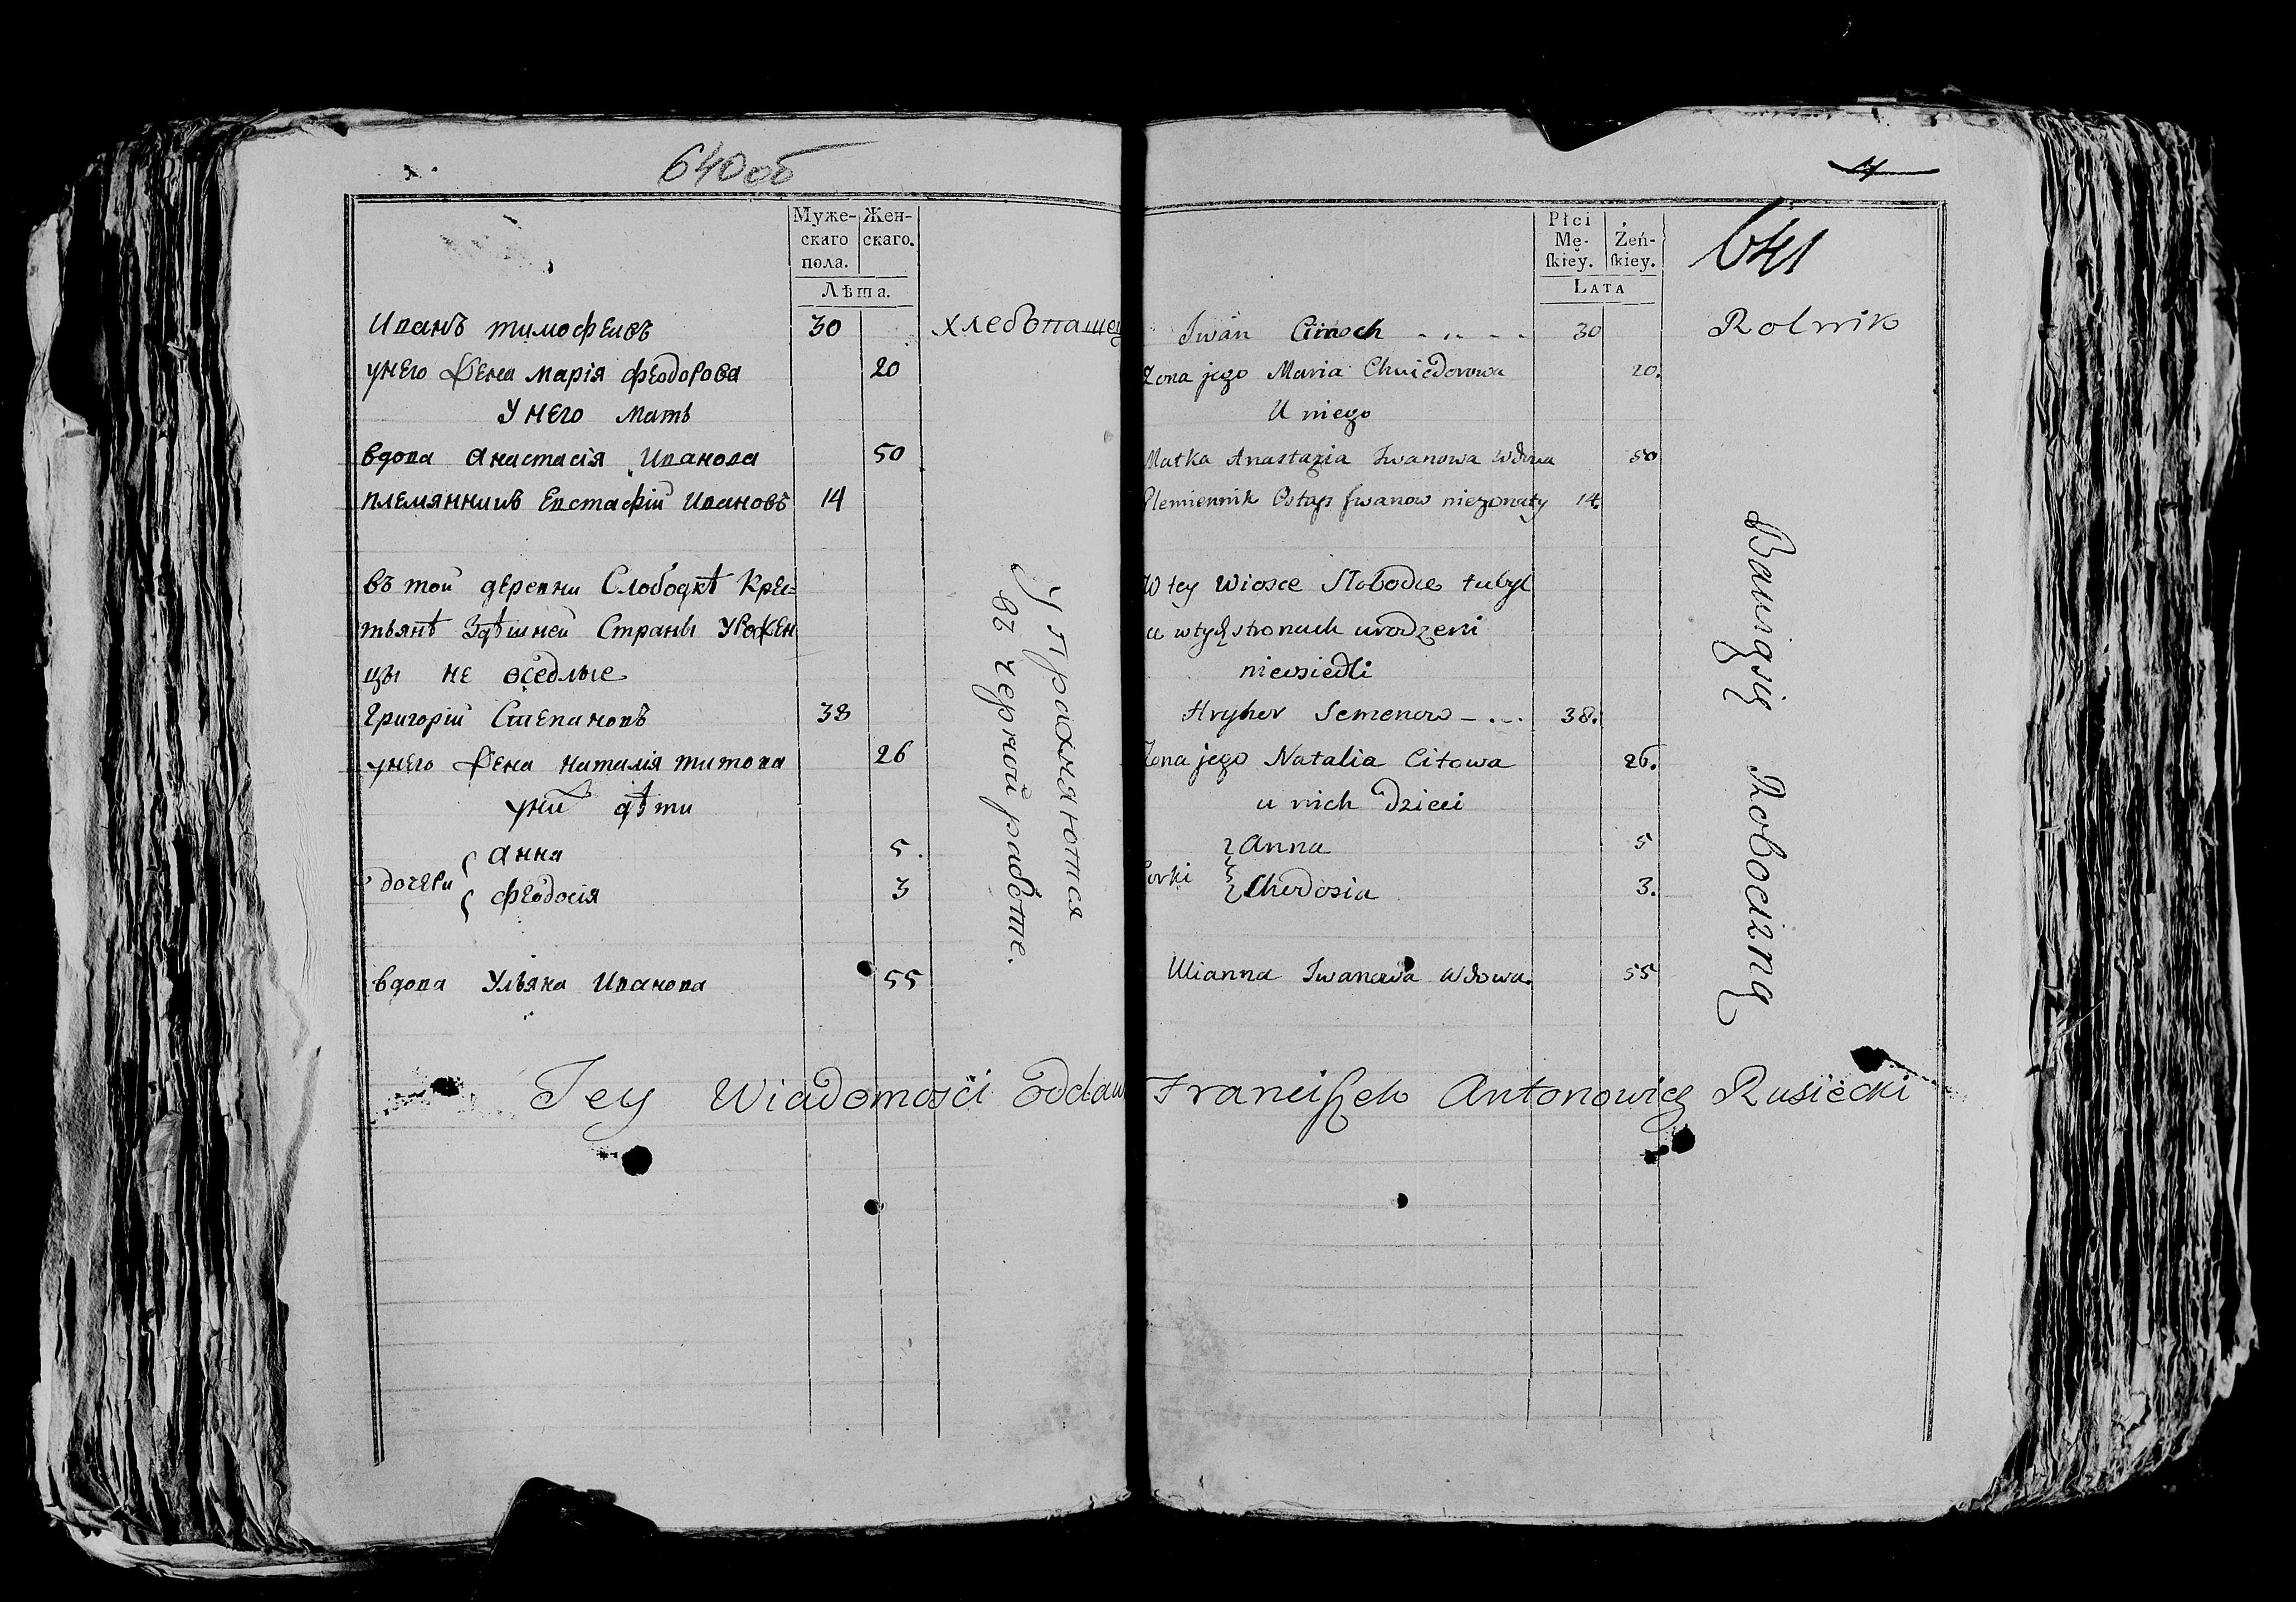 640об
Муже-
скаго
пола.
Жен-
скаго.
Лѣта.
Иванъ тимофеевъ 30 хлебопашец
унего жена марія феодорова 20
У него мать
вдова анастасія Иванова 50
племянникъ Евстафій Ивановъ 14
въ той деревни Слободкѣ Крес-
тьянѣ Здѣшней Страны Урожен
цы не оседлые
григорій Степановъ 38
унего жена наталія титова 26
уних дѣти
дочери анна 5.
феодосія 3
вдова Ульяна Иванова 55
Упражняются
въ черной работе.
Tey Wiadomości Oddaw
Płci
Mę-
ſkiey.
Żeń-
ſkiey.
Lata
641
Iwan 30 Rolnik
Zona jego Maria Chwiedorowa 20.
U niego
Matka Anastazia Iwanowa wdowa 50
Plemiennik Ostap Iwanow niezonaty 14.
W tey Wiosce Slobodce tubyl
ce wtych stronach urodzeni
nieosiedli
Hryhor Semenow 38.
Zona jego Natalia Citowa 26.
u nich dzieci
Corki Anna 5
Chwedosia 3.
Ulianna Iwanowa wdowa. 55
Bawią się Robocizną
Franciſzek Antonowicz Rusiecki